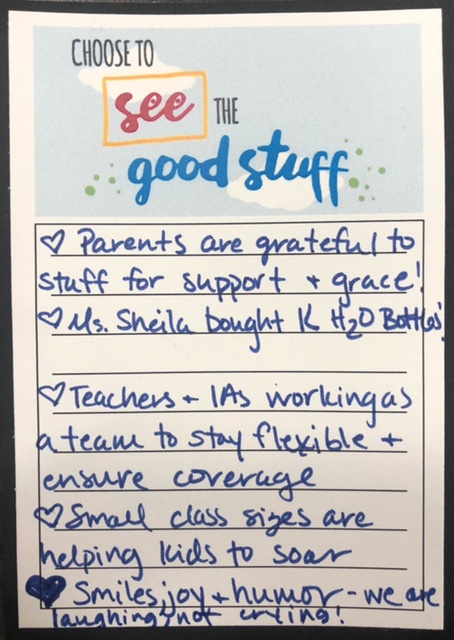 CHOOSE TO
see THE
good stuff
♡ Parents are grateful to
stuff for support + grace!
♡ Ms. Sheila bought K H2O Bottles!
♡ Teachers + IAs working as
a team to stay flexible +
ensure coverage
♡ Small class sizes are
helping kids to soar
♥ Smiles, joy + humor - we are
laughing, not crying!